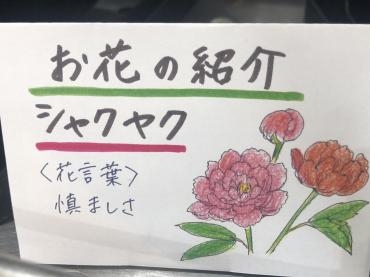 お花の紹介
シャクヤク
〈花言葉〉
慎ましさ